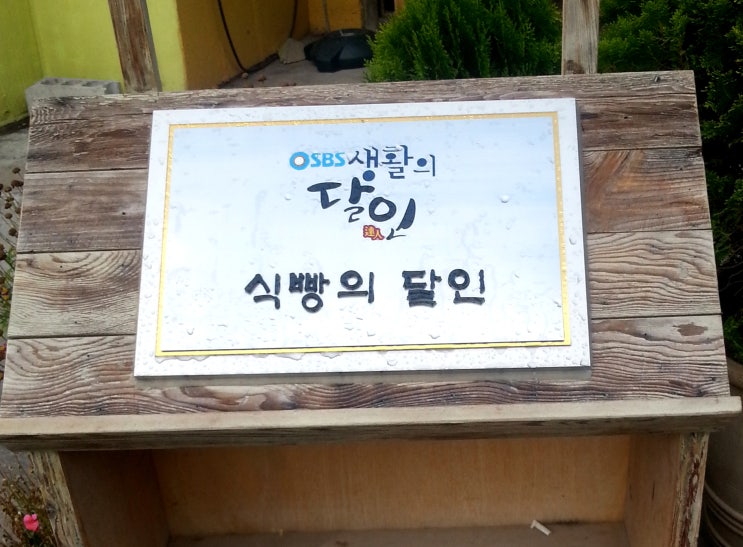 SBS 생활의
달인
達人
식빵의 달인